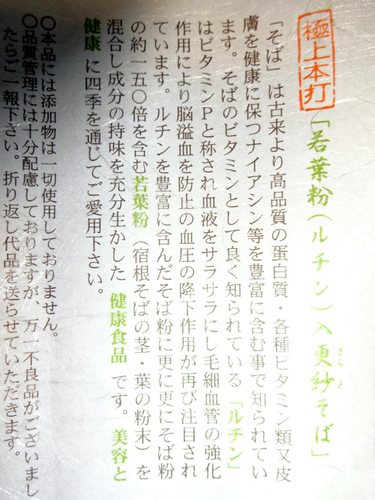 極上本打
「若葉粉(ルチン)入更紗そば」
さらさ
「そば」は古来より高品質の蛋白質・各種ビタミン類又皮
膚を健康に保つナイアシン等を豊富に含む事で知られてい
ます。そばのビタミンとして良く知られている「ルチン」
はビタミンPと称され血液をサラサラにし毛細血管の強化
作用により脳溢血を防止の血圧の降下作用が再び注目され
ています。ルチンを豊富に含んだそば粉に更に更にそば粉
の約一五〇倍を含む若葉粉(宿根そばの茎・葉の粉末)を
混合し成分の持味を充分生かした 健康食品 です。美容と
健康 に四季を通じてご愛用下さい。
〇本品には添加物は一切使用しておりません。
〇品質管理には十分配慮しておりますが、万一不良品がございまし
たらご一報下さい。折り返し代品を送らせていただきます。